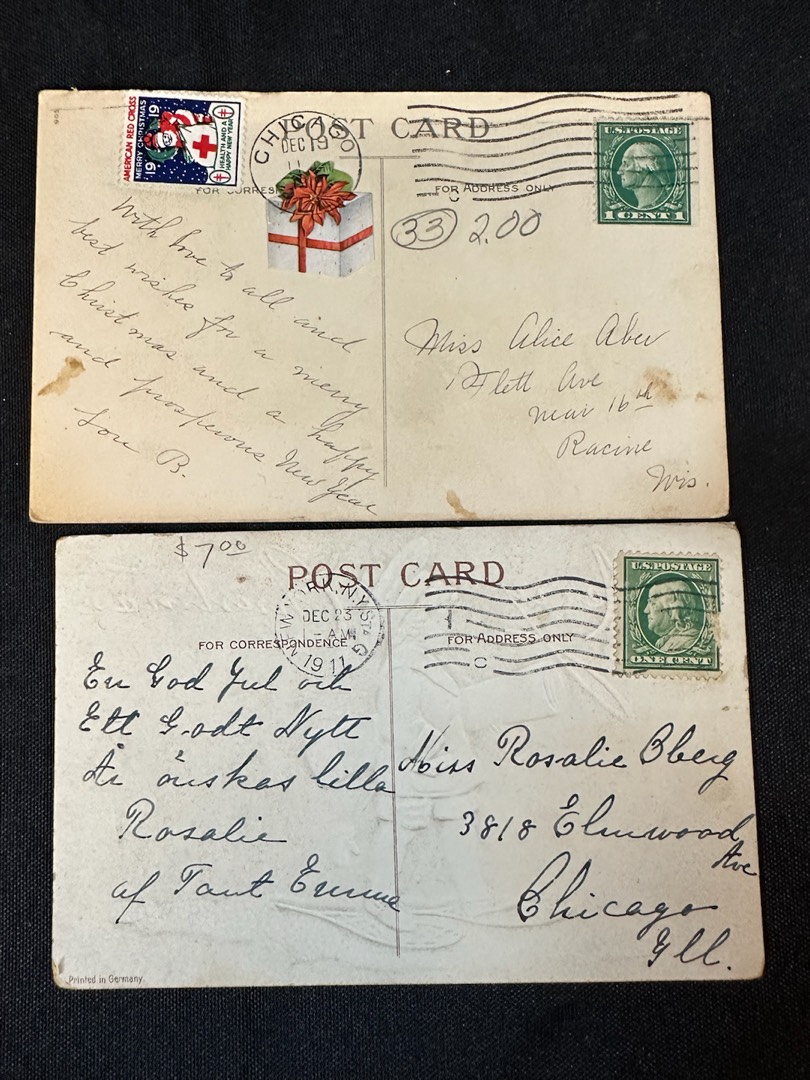 AMERICAN RED CROSS
MERRY CHRISTMAS
19 19
HEALTH AND A
HAPPY NEW YEAR
CHICAGO
DEC 19
11
POST CARD
U.S. POSTAGE
1 CENT 1
FOR CORRES
FOR ADDRESS ONLY
33 2.00
With love to all and
best wishes for a merry
Christmas and a happy
and prosperous New Year
Lou B.
Miss Alice Aber
Flett Ave
near 16th
Racine
Wis.
$7.00
POST CARD
NEW YORK, N.Y. STA G
DEC 23
- AM
1911
U.S. POSTAGE
ONE CENT
FOR CORRESPONDENCE
FOR ADDRESS ONLY
C
En God Jul och
Ett Godt Nytt
År önskas lilla
Rosalie
af Tant Emma
Miss Rosalie Oberg
3818 Elmwood
Ave
Chicago
Ill.
Printed in Germany